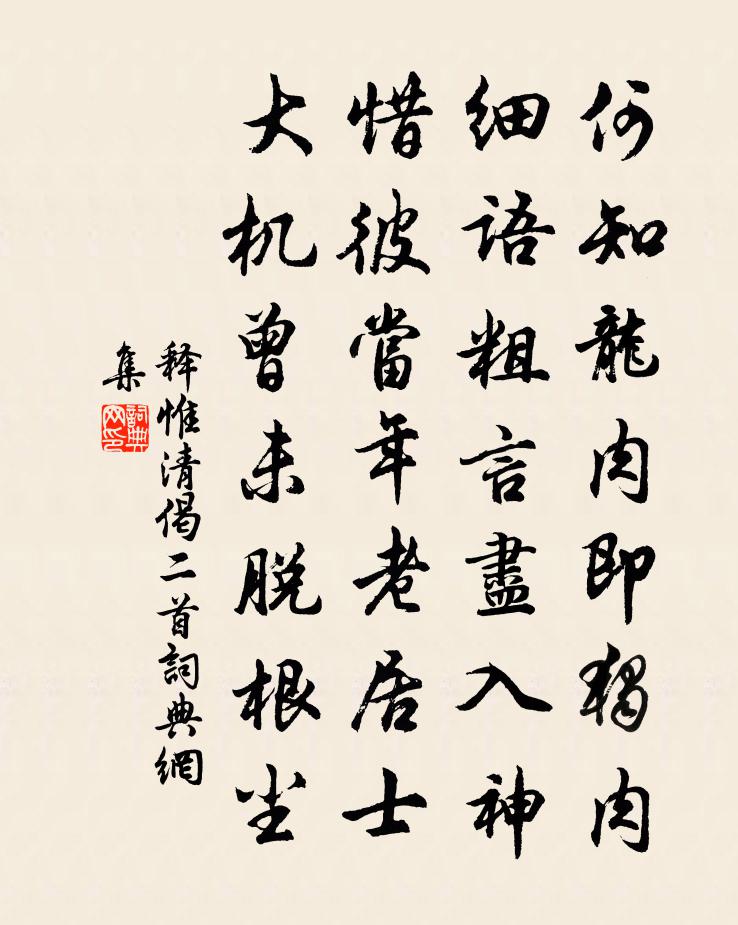 何知龍肉即猪肉
細語粗言盡入神
惜彼當年老居士
大机曾未脱根尘
释惟清偈二首詞典網
集
詞典网印